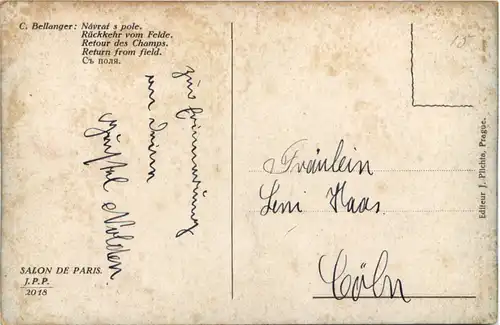 C. Bellanger: Návrat s pole.
Rückkehr vom Felde.
Retour des Champs.
Return from field.
Съ поля.
zur Erinnerung
an Deinen
Nolden
SALON DE PARIS.
J.P.P.
2018
15
Fräulein
Leni Haas
Cöln
Editeur J. Plichta, Prague.